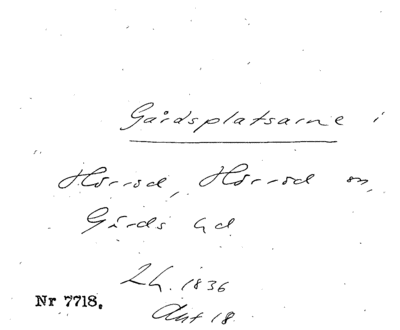 Gårdsplatsarne i
Hörröd, Hörröd sn,
Gärds hd
Lh. 1836
Akt 18.
Nr 7718.